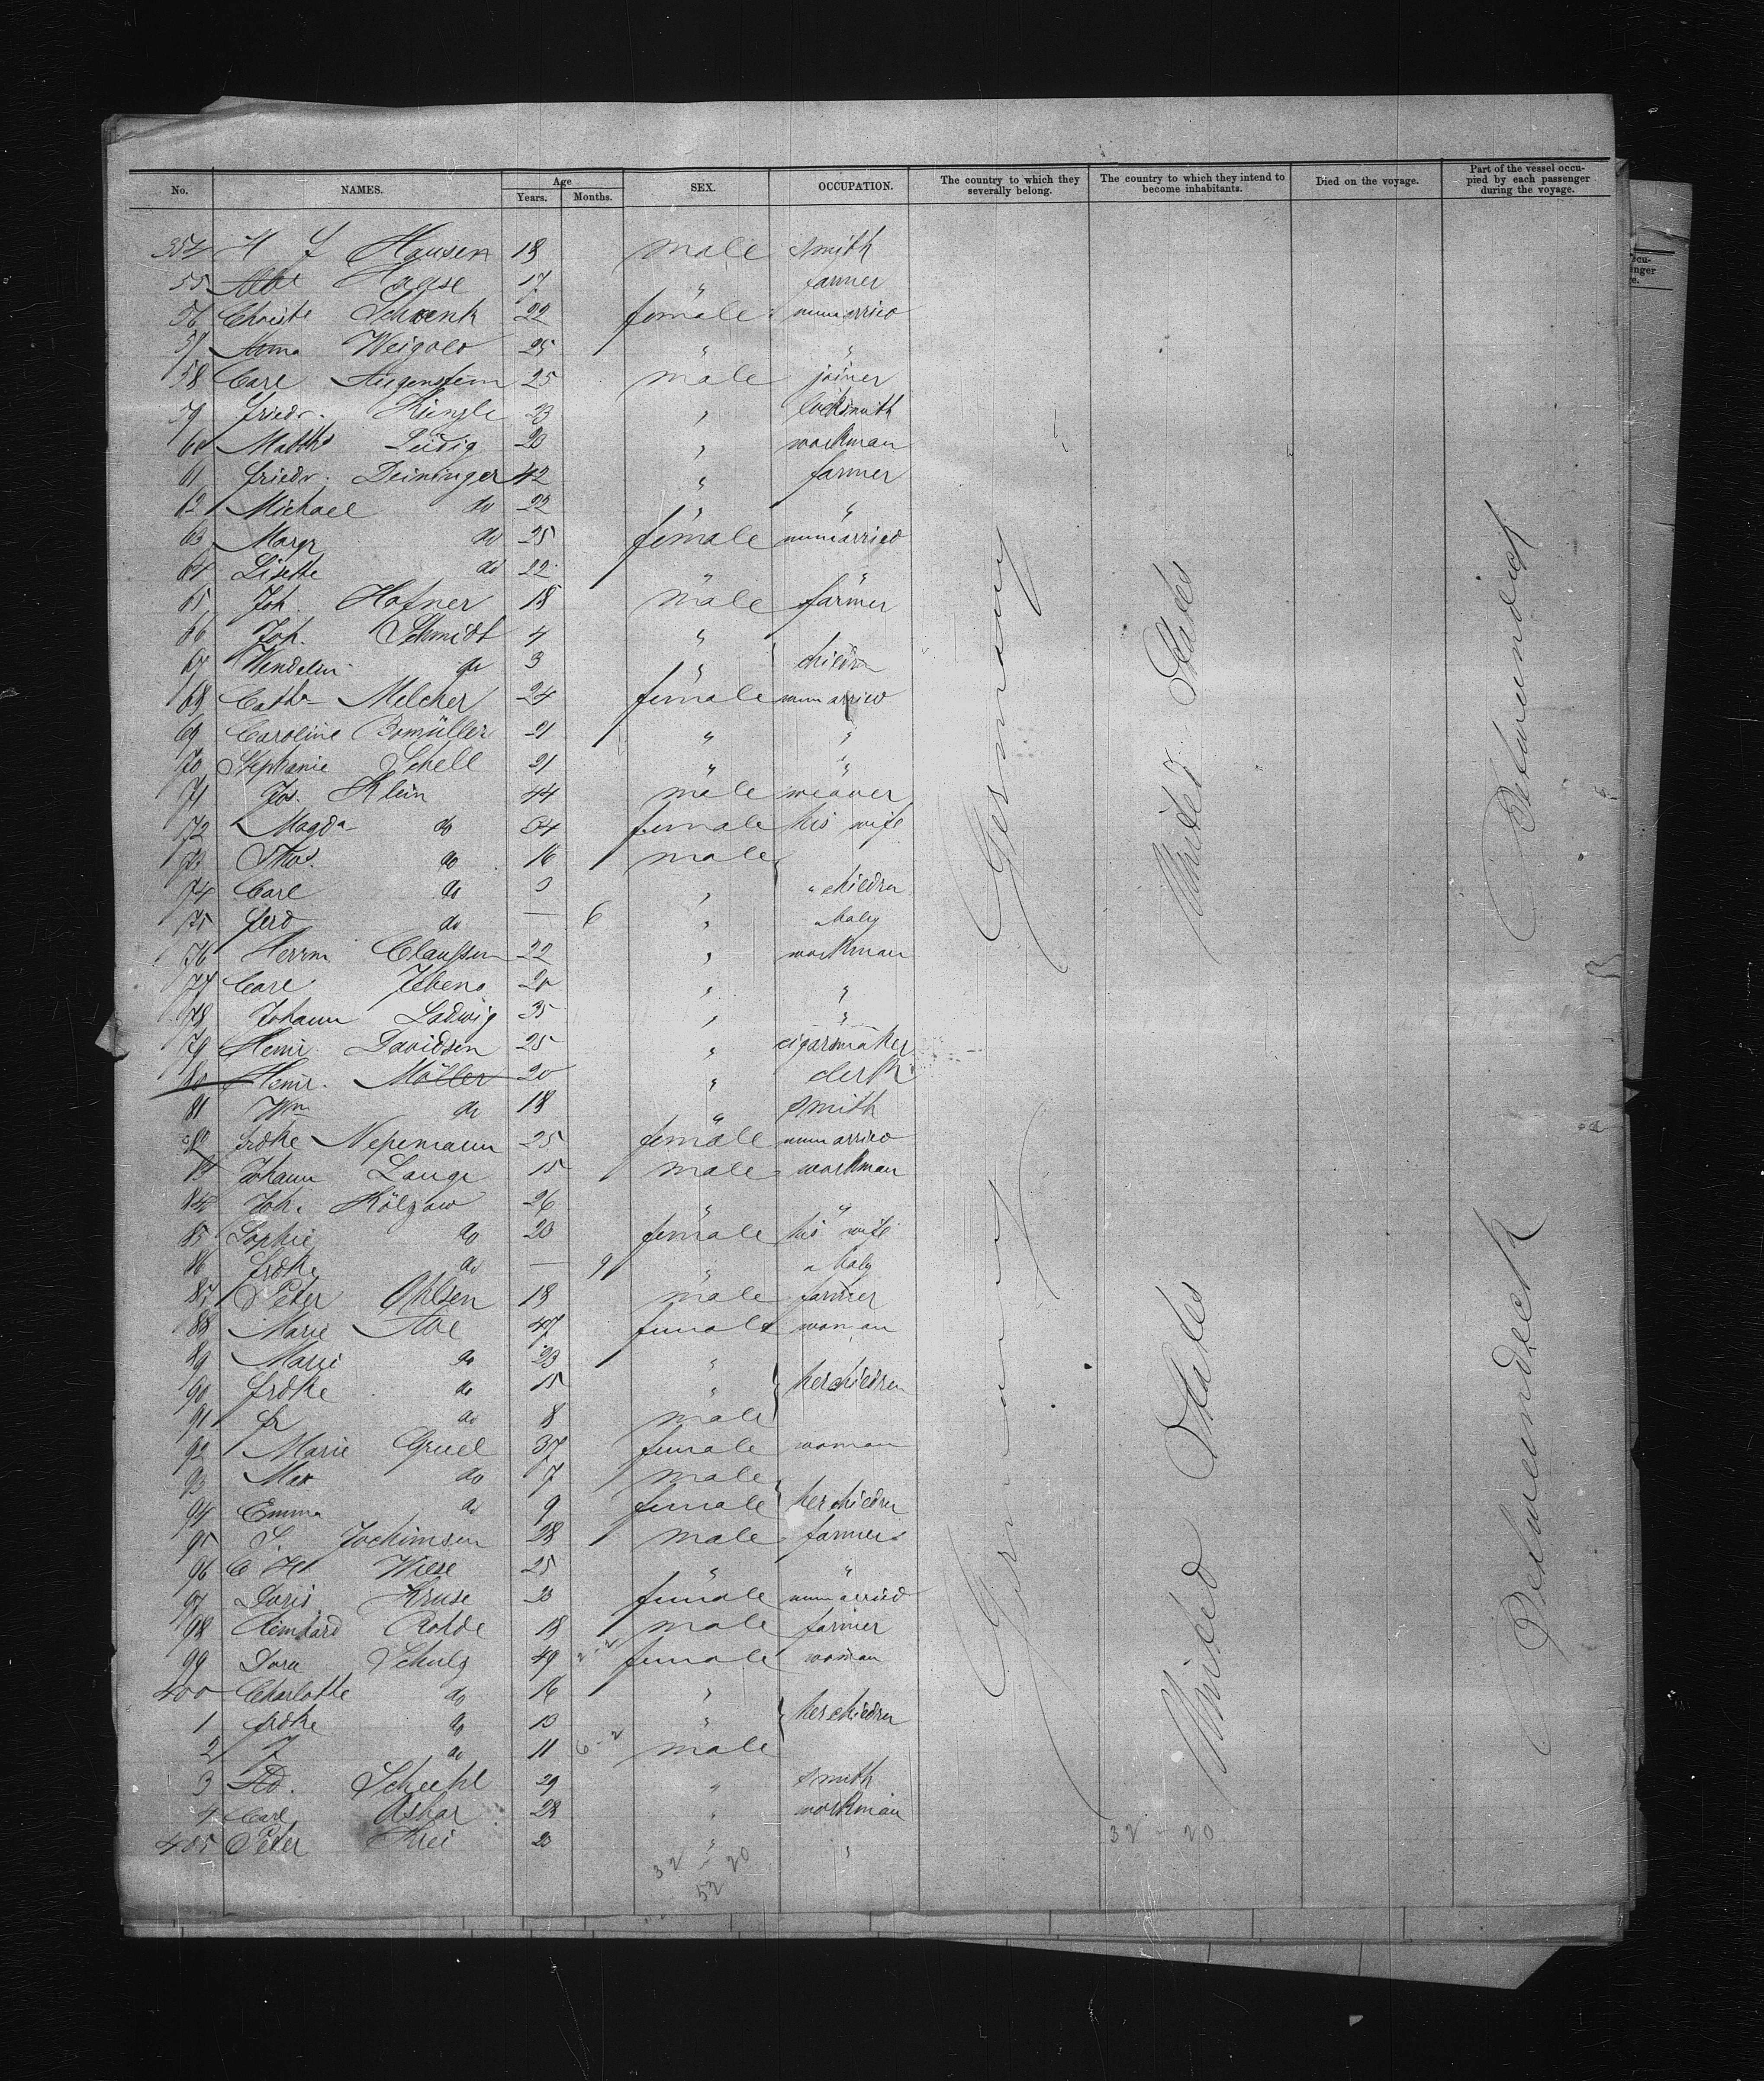 No. NAMES. Age Years. Months. SEX. OCCUPATION. The country to which they severally belong. The country to which they intend to become inhabitants. Died on the voyage. Part of the vessel occupied by each passenger during the voyage.
354 H Hansen 18 male smith
55 Haase 17 " farmer
56 Christe Schwenk 22 female unmarried
57 Anna Weigold 25 " "
58 Carl Augenstein 25 male joiner
59 Friedr. Kienzle 23 " locksmith
60 Matths Lüdig 20 " workman
61 Friedr. Deininger 42 " farmer
62 Michael do 22 " "
63 Margr do 25 female unmarried
64 Lisette do 22 " "
65 Joh. Hafner 18 male farmer
66 Joh. Schmidt 4 "
67 Wendelin do 3 " children
68 Catha Melcher 24 female unmarried
69 Caroline Bomüller 21 " "
70 Stephanie Schell 21 " "
71 Jos. Klein 44 male weaver
72 Magda do female his wife
73 Thos. do 16 male
74 Carl do 3 " " children
75 Ferd do — 6 " " baby
76 Herrm Claussen 22 " workman
77 Carl 20 " "
78 Johann Ladwig 35 " "
79 Heinr. Davidsen 25 " cigarsmaker
80 Heinr. Möller 20 " clerk
81 Wm do 18 " smith
82 Frdke Nepemann 25 female unmarried
83 Johann Lange 15 male workman
84 Joh. Kölzow 26 " "
85 Sophie do 23 female his wife
86 Frdke do — 9 " " baby
87 Peter Ohlsen 18 male farmer
88 Marie Abe 47 female woman
89 Marie do 23 "
90 Frdke do 15 " her children
91 Fr do 8 male
92 Marie Gruel 37 female woman
93 Max do 7 male
94 Emma do 9 female her children
95 S. Jochimsen 28 male farmer
96 C H Wiese 25 " "
97 Doris Kruse 23 female unmarried
98 Reinhard Rohde 18 male farmer
99 Dora Schulz 49 female woman
400 Charlotte do 16 "
1 Frdke do 13 " her children
2 J do 11 male
3 Ad. Scheehl 29 " smith
4 Carl Asbar 28 " workman
405 Peter Krei 23 " "
Germany United States Betweendeck
Germany United States Betweendeck
32 - 20
52
32 - 20